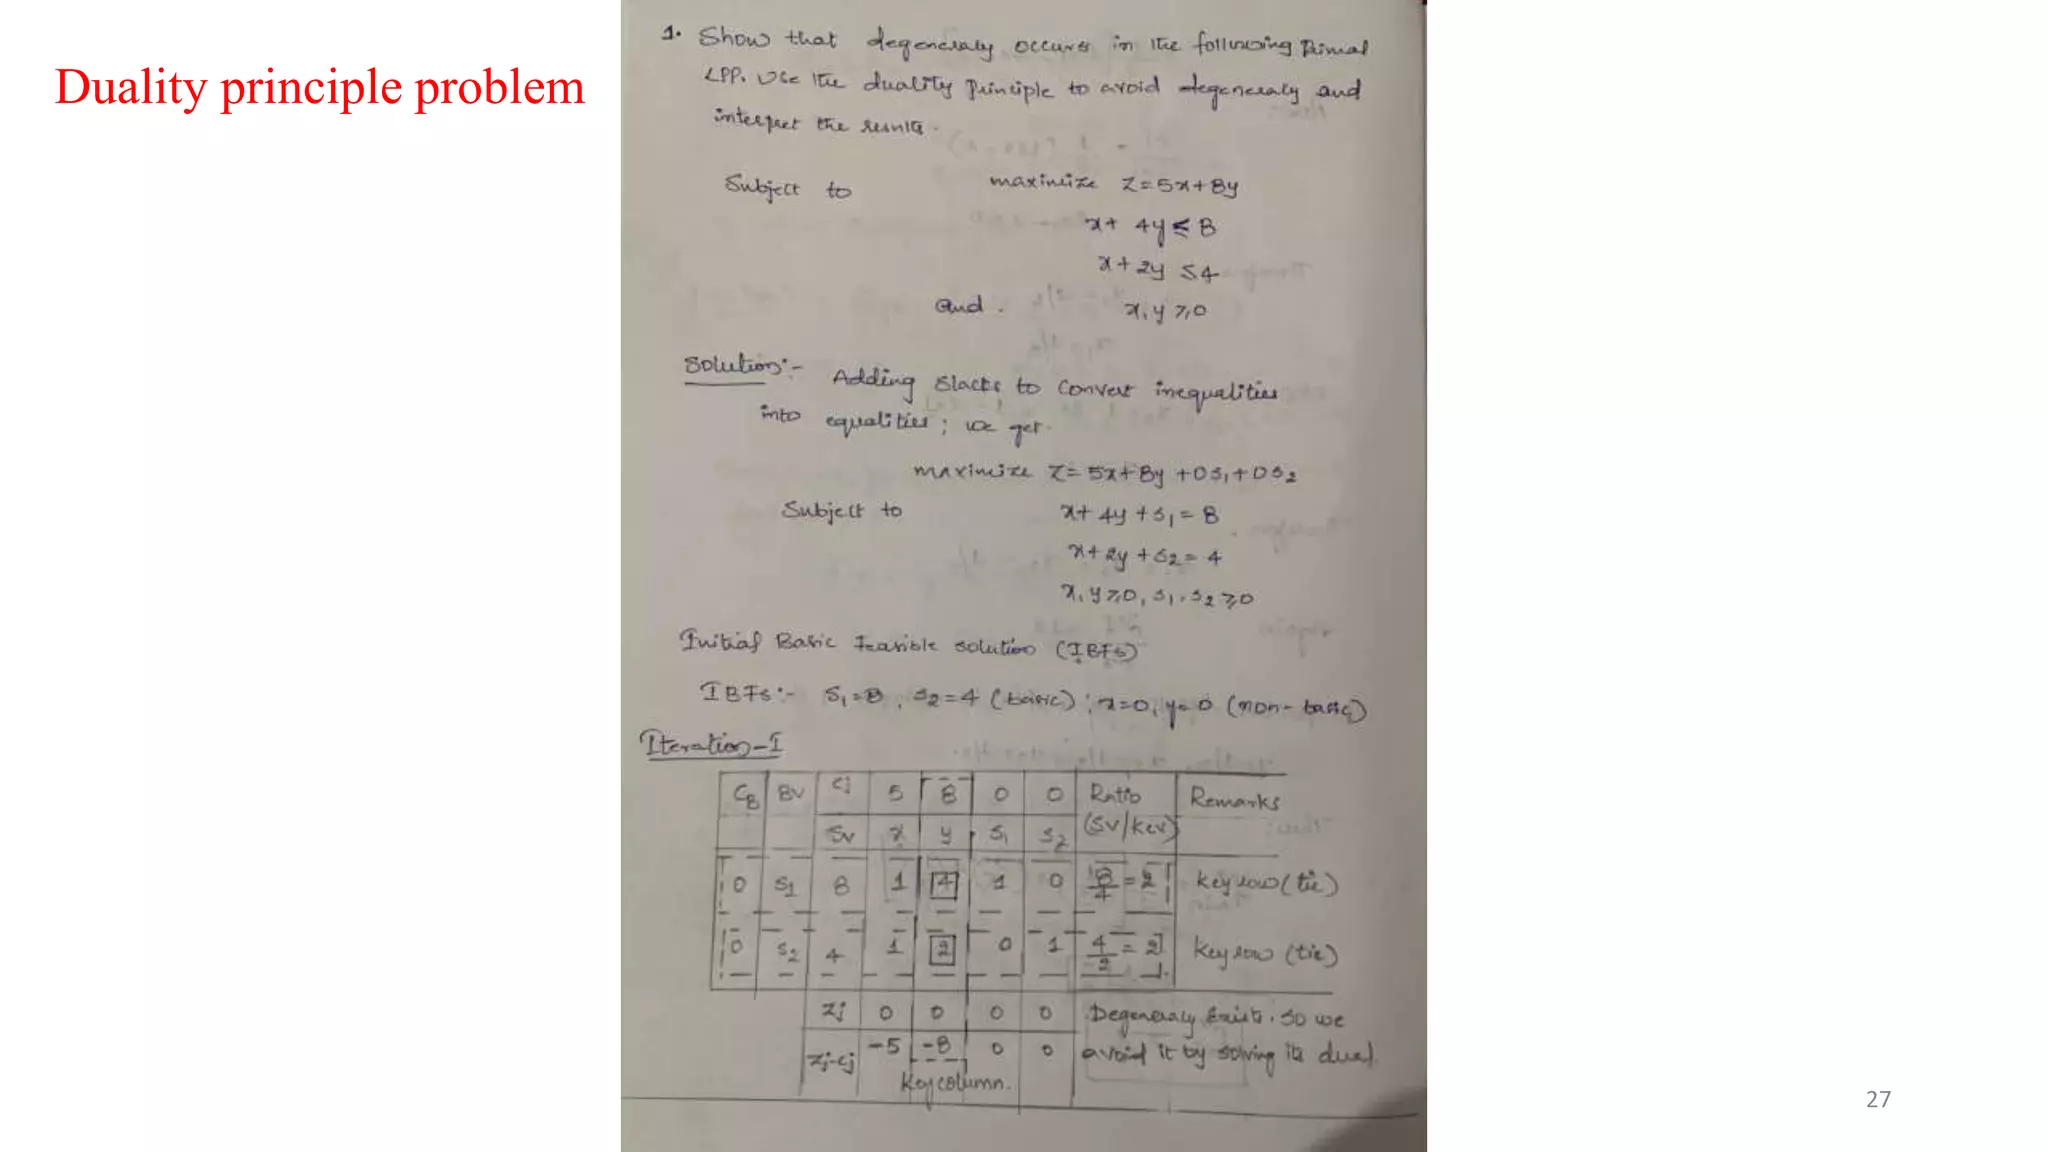 Duality principle problem
1. Show that degeneracy occurs in the following Primal
LPP. Use the duality Principle to avoid degeneracy and
interpret the results.
Subject to maximize Z=5x+8y
x+ 4y ≤ 8
x+2y ≤4
and . x,y ≥0
Solution:- Adding Slacks to Convert inequalities
into equalities; we get.
maximize Z=5x+8y +0s₁+0s₂
Subject to x+ 4y +s₁= 8
x+2y +s₂= 4
x,y≥0, s₁,s₂≥0
Initial Basic Feasible solution (IBFS)
IBFS:- S₁=8, s₂=4 (basic); x=0, y=0 (non-basic)
Iteration-I
CB BV Cj 5 8 0 0 Ratio Remarks
SV x y S₁ S₂ (SV/kcv)
0 S1 8 1 4 1 0 8/4=2 key row (tie)
0 S2 4 1 2 0 1 4/2=2 key row (tie)
Zj 0 0 0 0 Degeneracy Exists. So we
Zj-cj -5 -8 0 0 avoid it by solving its dual
Key column.
27